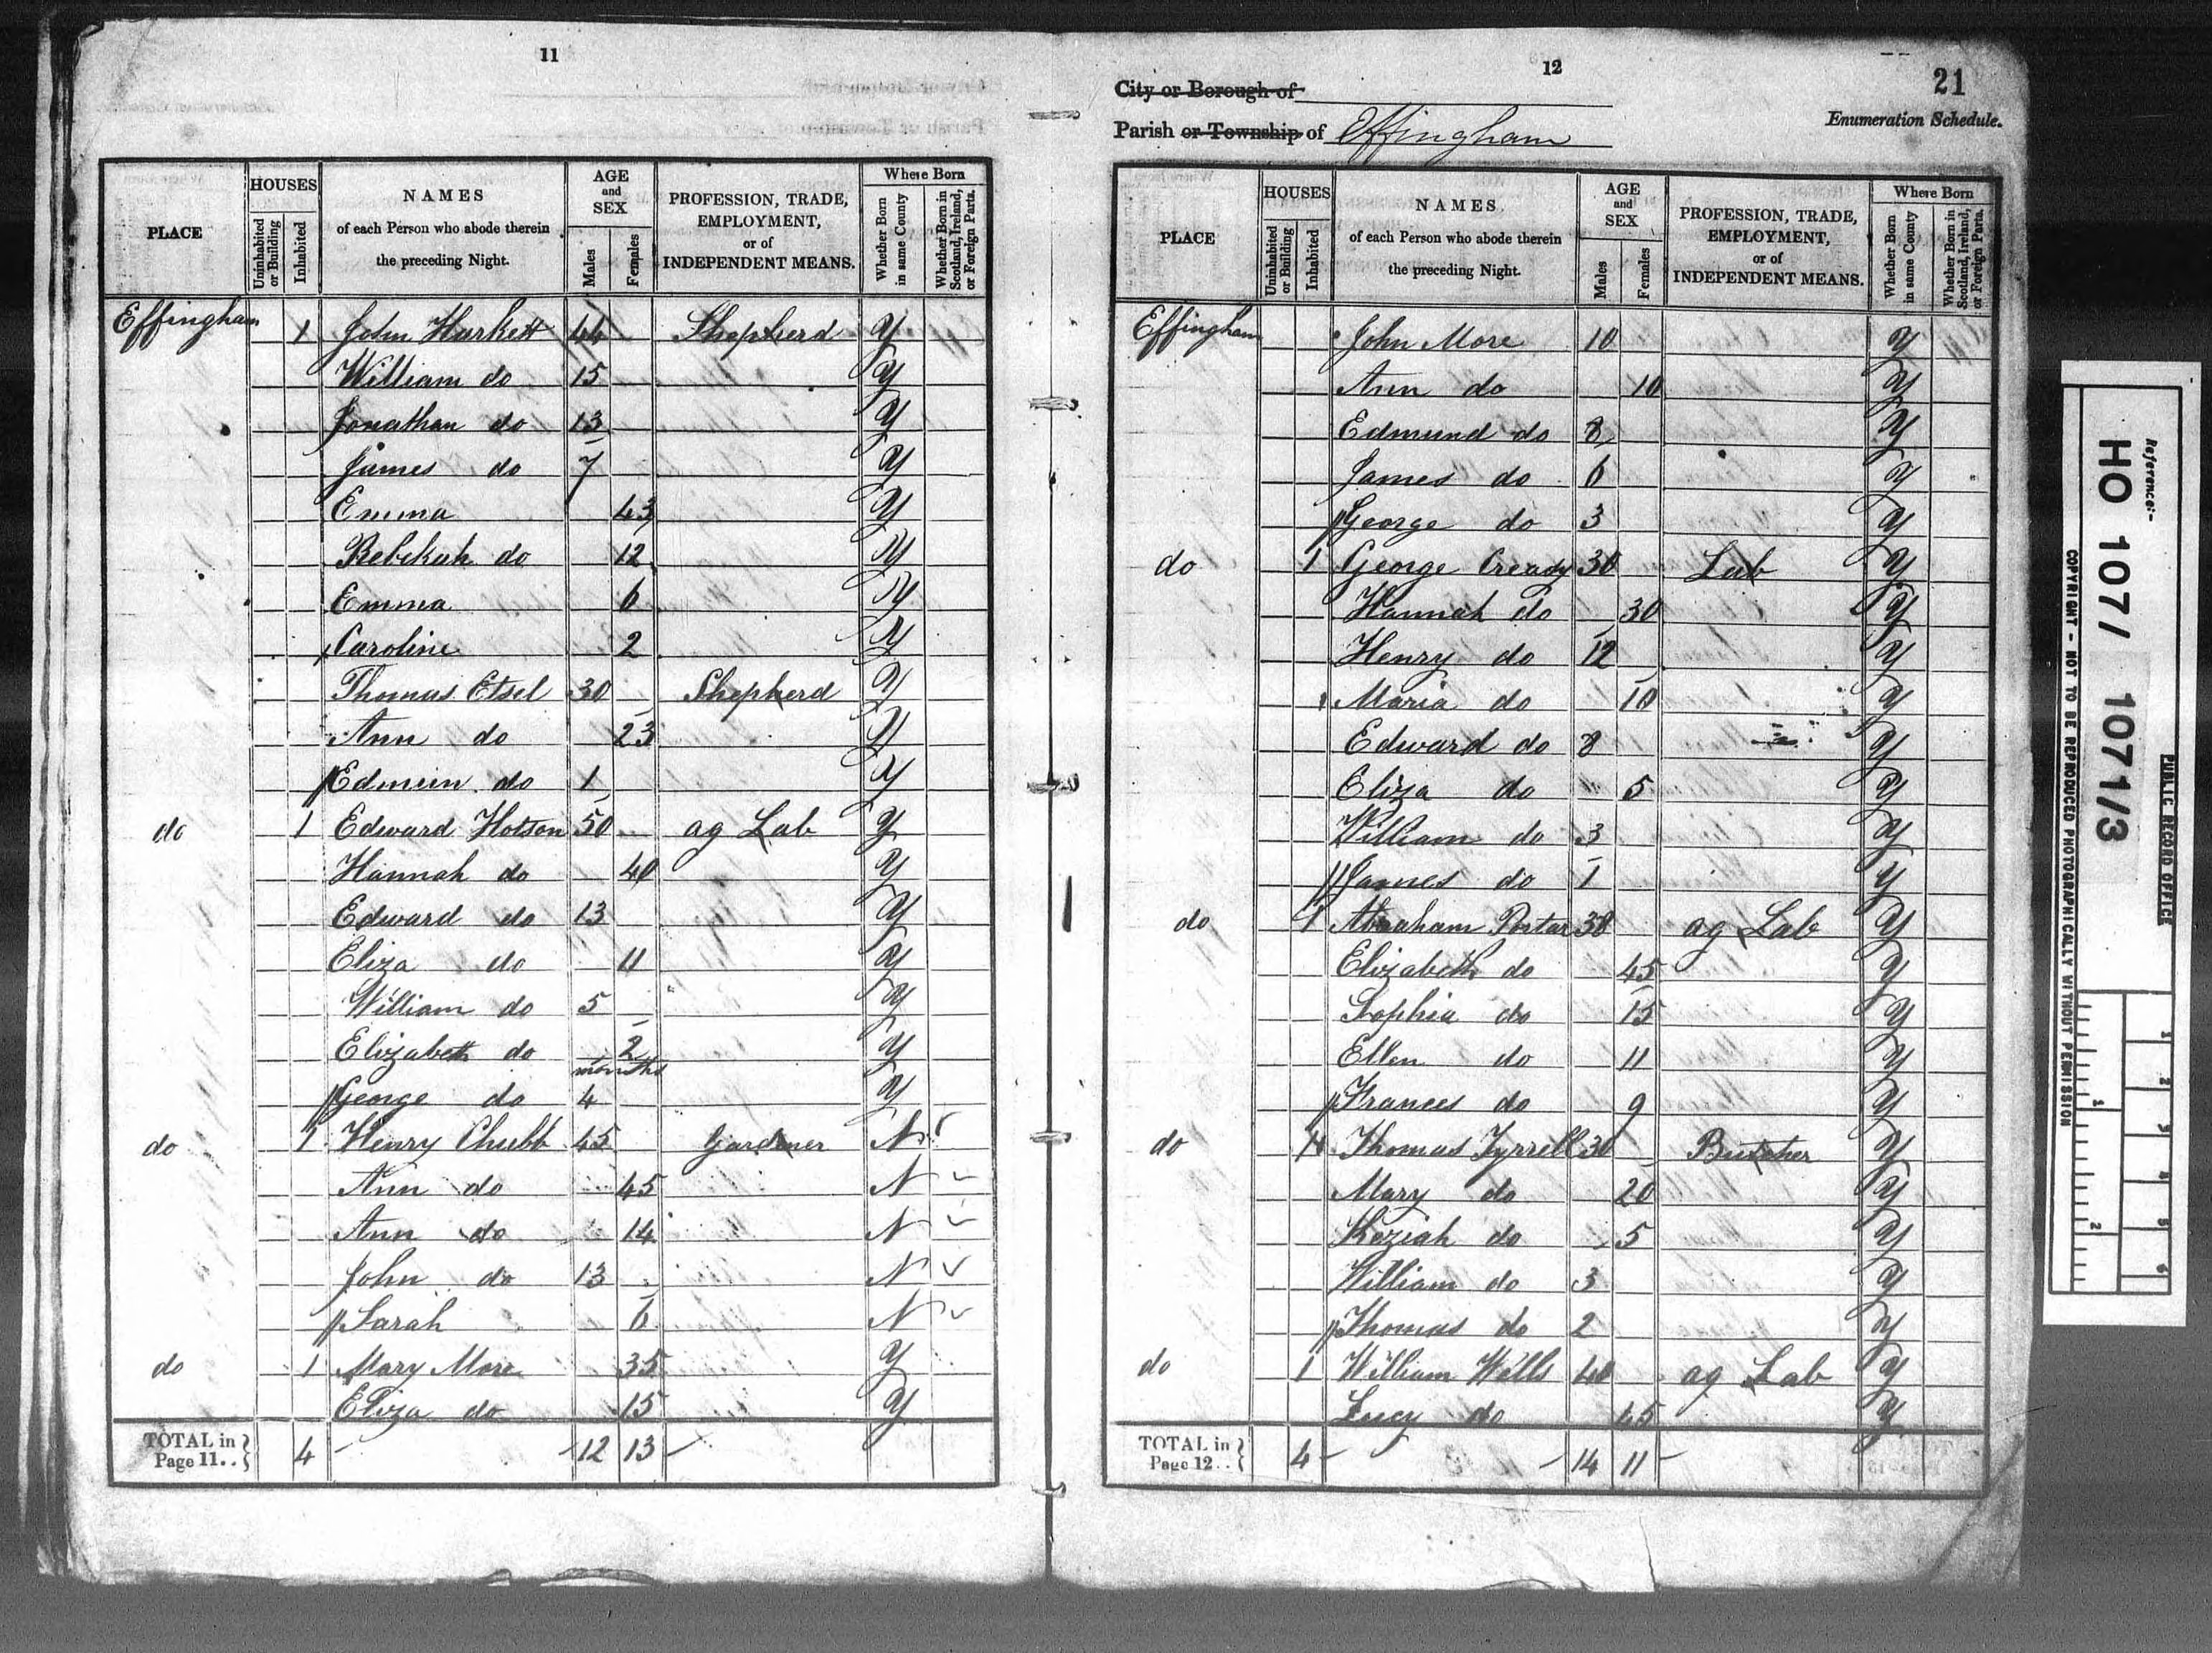 11
PLACE
HOUSES
Uninhabited or Building
Inhabited
NAMES
of each Person who abode therein
the preceding Night.
AGE
and
SEX
Males
Females
PROFESSION, TRADE,
EMPLOYMENT,
or of
INDEPENDENT MEANS.
Where Born
Whether Born in same County
Whether Born in Scotland, Ireland, or Foreign Parts.
Effingham 1 John Harkett 44 Shepherd Y
William do 15 Y
Jonathan do 13 Y
James do 7 Y
Emma 43 Y
Rebekah do 12 Y
Emma 6 Y
Caroline 2 Y
Thomas Etsel 30 Shepherd Y
Ann do 23 Y
do 1 Y
do 1 Edward Hotson 50 ag Lab Y
Hannah do 40 Y
Edward do 13 Y
Eliza do 11 Y
William do 5 Y
Elizabeth do 2 months Y
George do 4 Y
do 1 Henry Chubb 45 Gardner N
Ann do 45 N
Ann do 14 N
John do 13 N
Sarah 6 N
do 1 Mary More 35 Y
Eliza do 15 Y
TOTAL in Page 11.. 4 12 13
12
21
City or Borough of
Enumeration Schedule.
Parish or Township of Effingham
PLACE
HOUSES
Uninhabited or Building
Inhabited
NAMES
of each Person who abode therein
the preceding Night.
AGE
and
SEX
Males
Females
PROFESSION, TRADE,
EMPLOYMENT,
or of
INDEPENDENT MEANS.
Where Born
Whether Born in same County
Whether Born in Scotland, Ireland, or Foreign Parts.
Effingham John More 10 Y
Ann do 10 Y
Edmund do 8 Y
James do 6 Y
George do 3 Y
do 1 George Cready 30 Lab Y
Hannah do 30 Y
Henry do 12 Y
Maria do 10 Y
Edward do 8 Y
Eliza do 5 Y
William do 3 Y
James do 1 Y
do 1 Abraham Postar 38 ag Lab Y
Elizabeth do 45 Y
Sophia do 15 Y
Ellen do 11 Y
Frances do 9 Y
do 1 Thomas Tyrrell 30 Butcher Y
Mary do 20 Y
Keziah do 5 Y
William do 3 Y
Thomas do 2 Y
do 1 William Wells 40 ag Lab Y
Lucy do 45 Y
TOTAL in Page 12.. 4 14 11
Reference:-
HO 107/ 1071/3
PUBLIC RECORD OFFICE
COPYRIGHT - NOT TO BE REPRODUCED PHOTOGRAPHICALLY WITHOUT PERMISSION
1 2
1 2 3 4 5 6